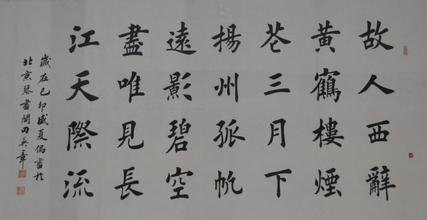 故人西辭
黄鶴樓煙
花三月下
揚州孤帆
遠影碧空
盡唯見長
江天際流
歲在己卯盛夏偶書於
北京琴書閣田英章